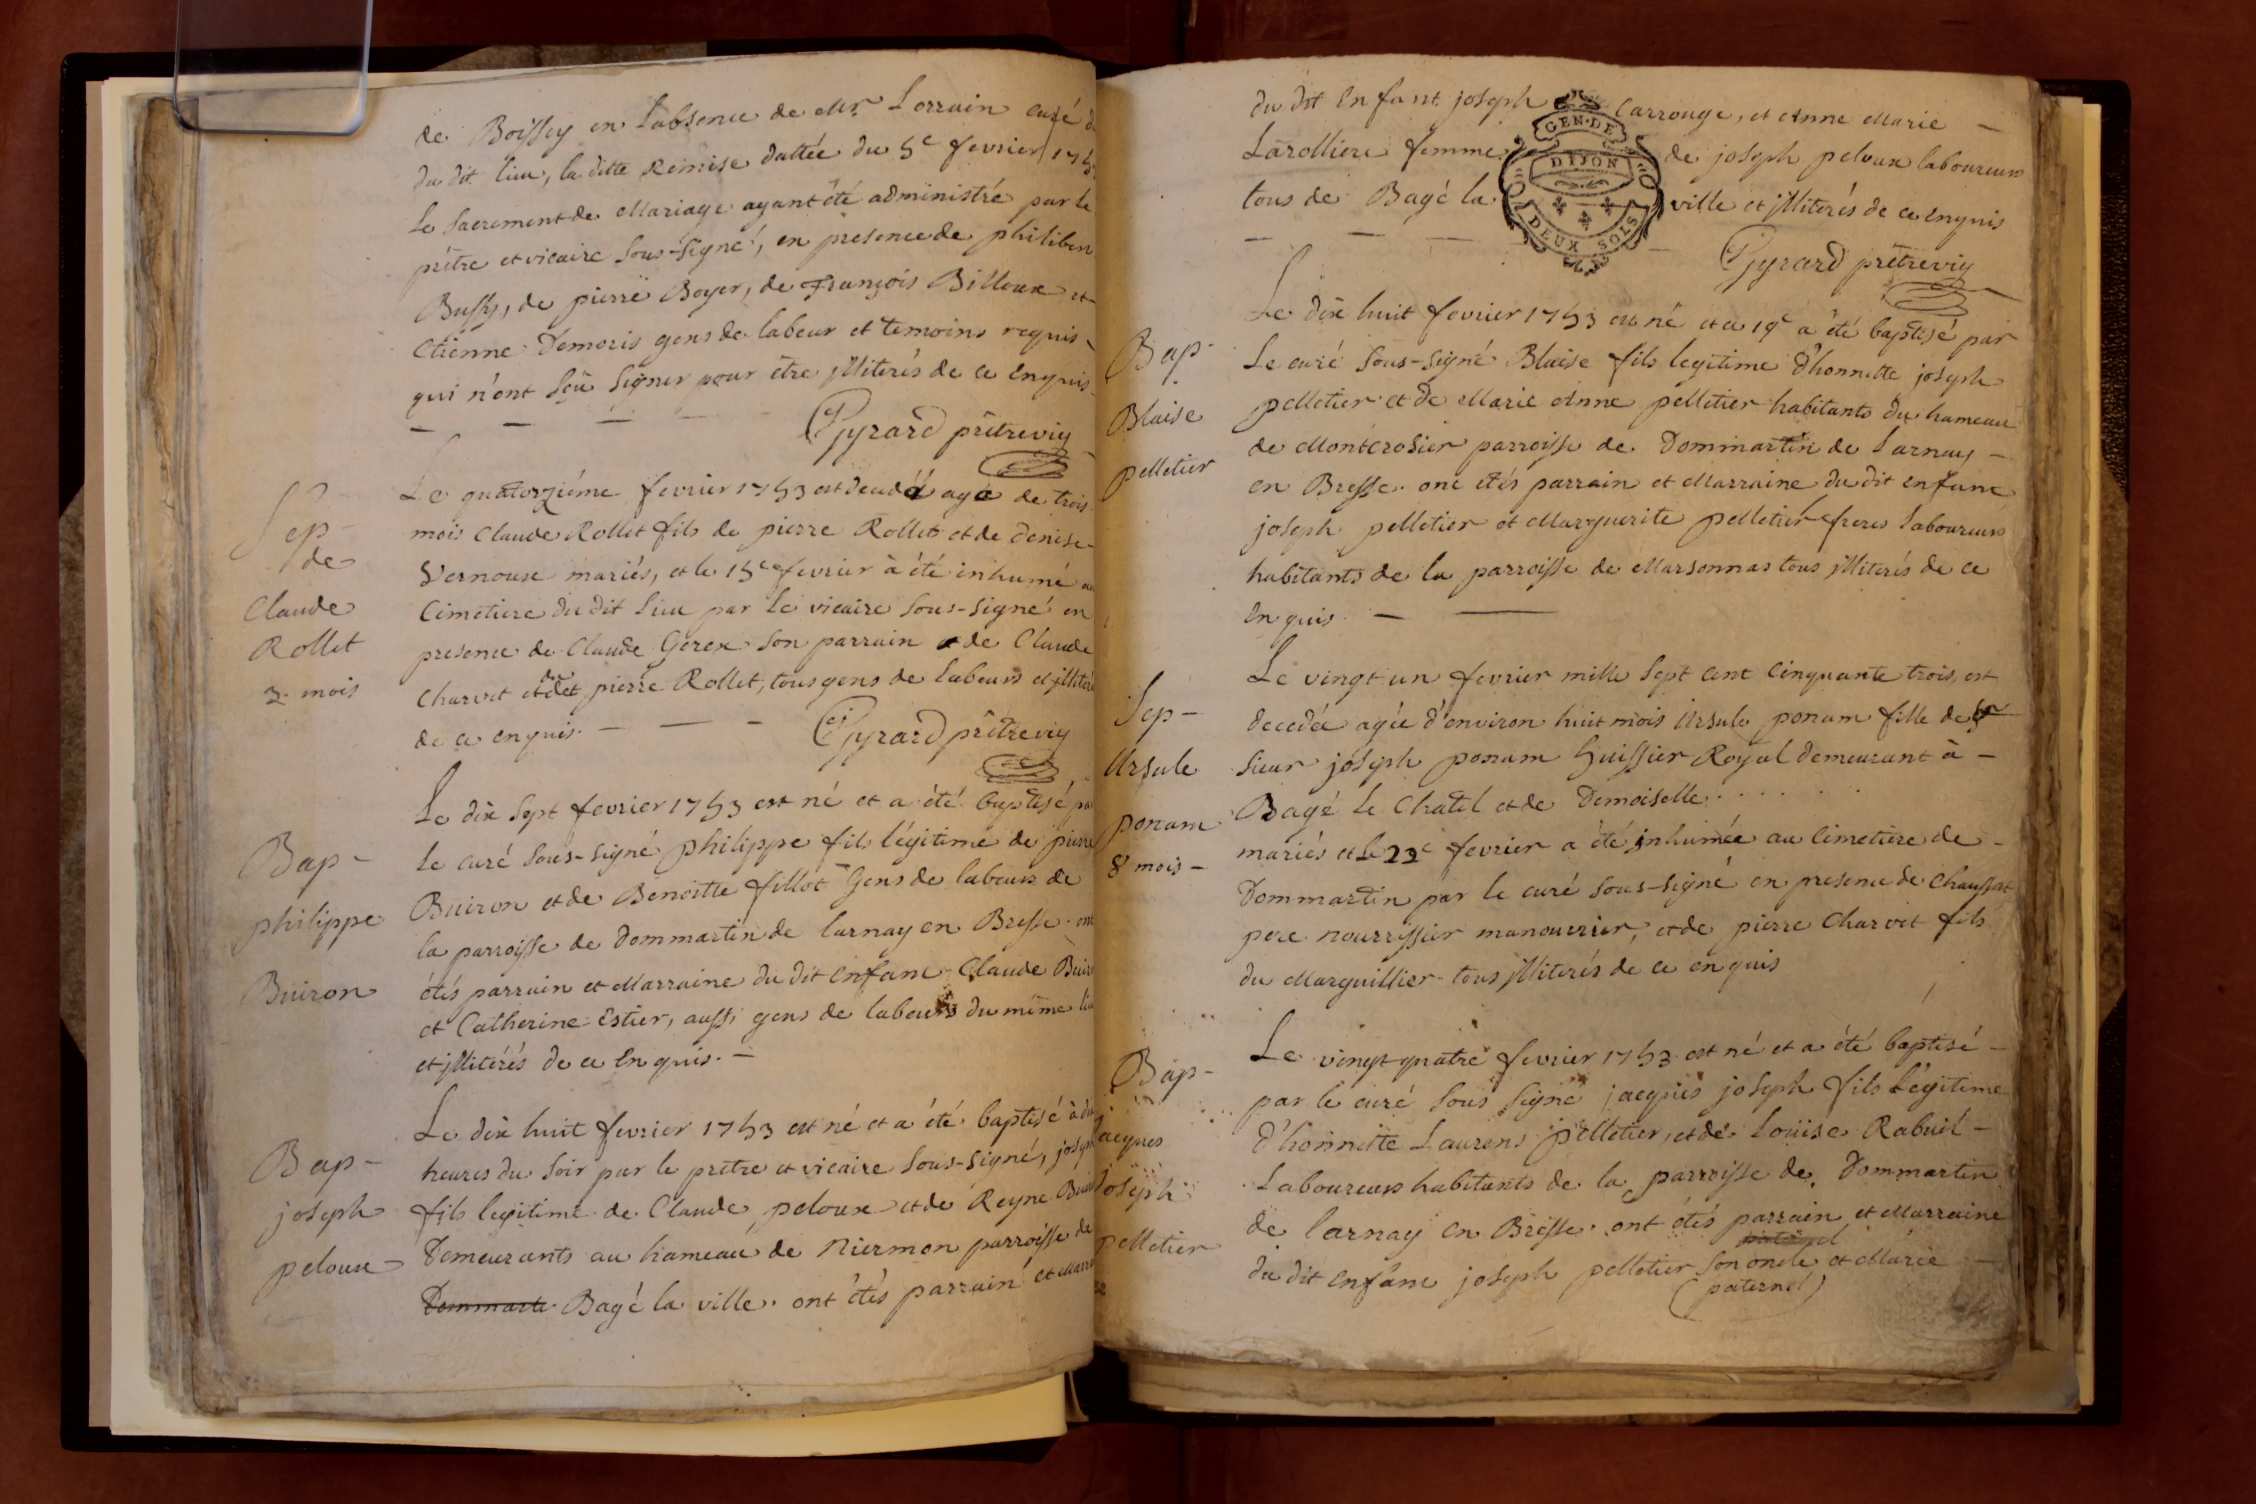 de Boissey en l'absence de Mr Lorrain curé
du dit lieu, la ditte Remise dattée du 5e fevrier 175
Le sacrement de Mariage ayant été administré par le
prêtre et vicaire sous-signé, en presence de philiben
Bussy, de pierre Boyer, de François Billoux et
Etienne Demoris gens de labeur et temoins requis
qui n'ont sçû signer pour être jlliterés de ce enquis
Gyrard prêtre vic
Sep-
de
Claude
Rollet
3 mois
Le quatorzième fevrier 1753 est decedé agé de trois
mois Claude Rollet fils de pierre Rollet et de Denise
Vernoux mariés, et le 15e fevrier à été inhumé au
Cimetiere du dit lieu par le vicaire sous-signé en
presence de Claude Gerex son parrain et de Claude
Charvet et de pierre Rollet, tous gens de labeurs et jllit
de ce enquis.
Gyrard prêtre vic
Bap-
philippe
Buiron
Le dix sept fevrier 1753 est né et a été baptisé pa
le curé sous-signé philippe fils légitime de pierre
Buiron et de Benoitte fillot Gens de labeurs de
la parroisse de Dommartin de larnay en Bresse. ont
étés parrain et Marraine du dit enfant Claude Buir
et Catherine Estier, aussi gens de labeurs du même li
et jlliterés de ce enquis.
Bap-
joseph
peloux
Le dix huit fevrier 1753 est né et a été baptisé à
heures du soir par le prêtre et vicaire sous-signé, joseph
fils legitime de Claude peloux et de Reyne Bui
Demeurants au hameau de Niermon parroisse de
Dommarti Bagé la ville. ont étés parrain et Marr
du dit enfant joseph Carrouge, et Anne Marie
Larolliere femme de joseph peloux laboureurs
tous de Bagé la ville et jlliterés de ce enquis
GEN·DE
DIJON
DEUX SOLS
Gyrard prêtre vic
Bap-
Blaise
pelletier
Le dix huit fevrier 1753 est né et a 19e a été baptisé par
Le curé sous-signé Blaise fils legitime d'honnette joseph
pelletier et de Marie Anne pelletier habitants du hameau
de Montcrosier parroisse de Dommartin de Larnay
en Bresse. ont étés parrain et Marraine du dit enfant
joseph pelletier et Marguerite pelletier freres laboureurs
habitants de la parroisse de Marsonnas tous jlliterés de ce
enquis.
Sep-
Ursule
ponam
8 mois-
Le vingt-un fevrier mille sept cent cinquante trois, est
decedée agée d'environ huit mois Ursule ponam fille de
sieur joseph ponam huissier Royal demeurant à
Bagé le Chatel et de Demoiselle . . . . . .
mariés et le 22e fevrier a été inhumée au Cimetiere de
Dommartin par le curé sous-signé en presence de Chaussat
pere nourrissier manouvrier, et de pierre Charvet fils
du Marguillier tous jlliterés de ce enquis
Bap-
jacques
joseph
pelletier
Le vingt-quatre fevrier 1753 est né et a été baptisé
par le curé sous signé jacques joseph fils légitime
d'honnette Laurens pelletier, et de Louise Rabuil
Laboureurs habitants de la parroisse de Dommartin
de larnay en Bresse. ont étés parrain et Marraine
du dit enfant joseph pelletier son oncle et Marie
(paternel)